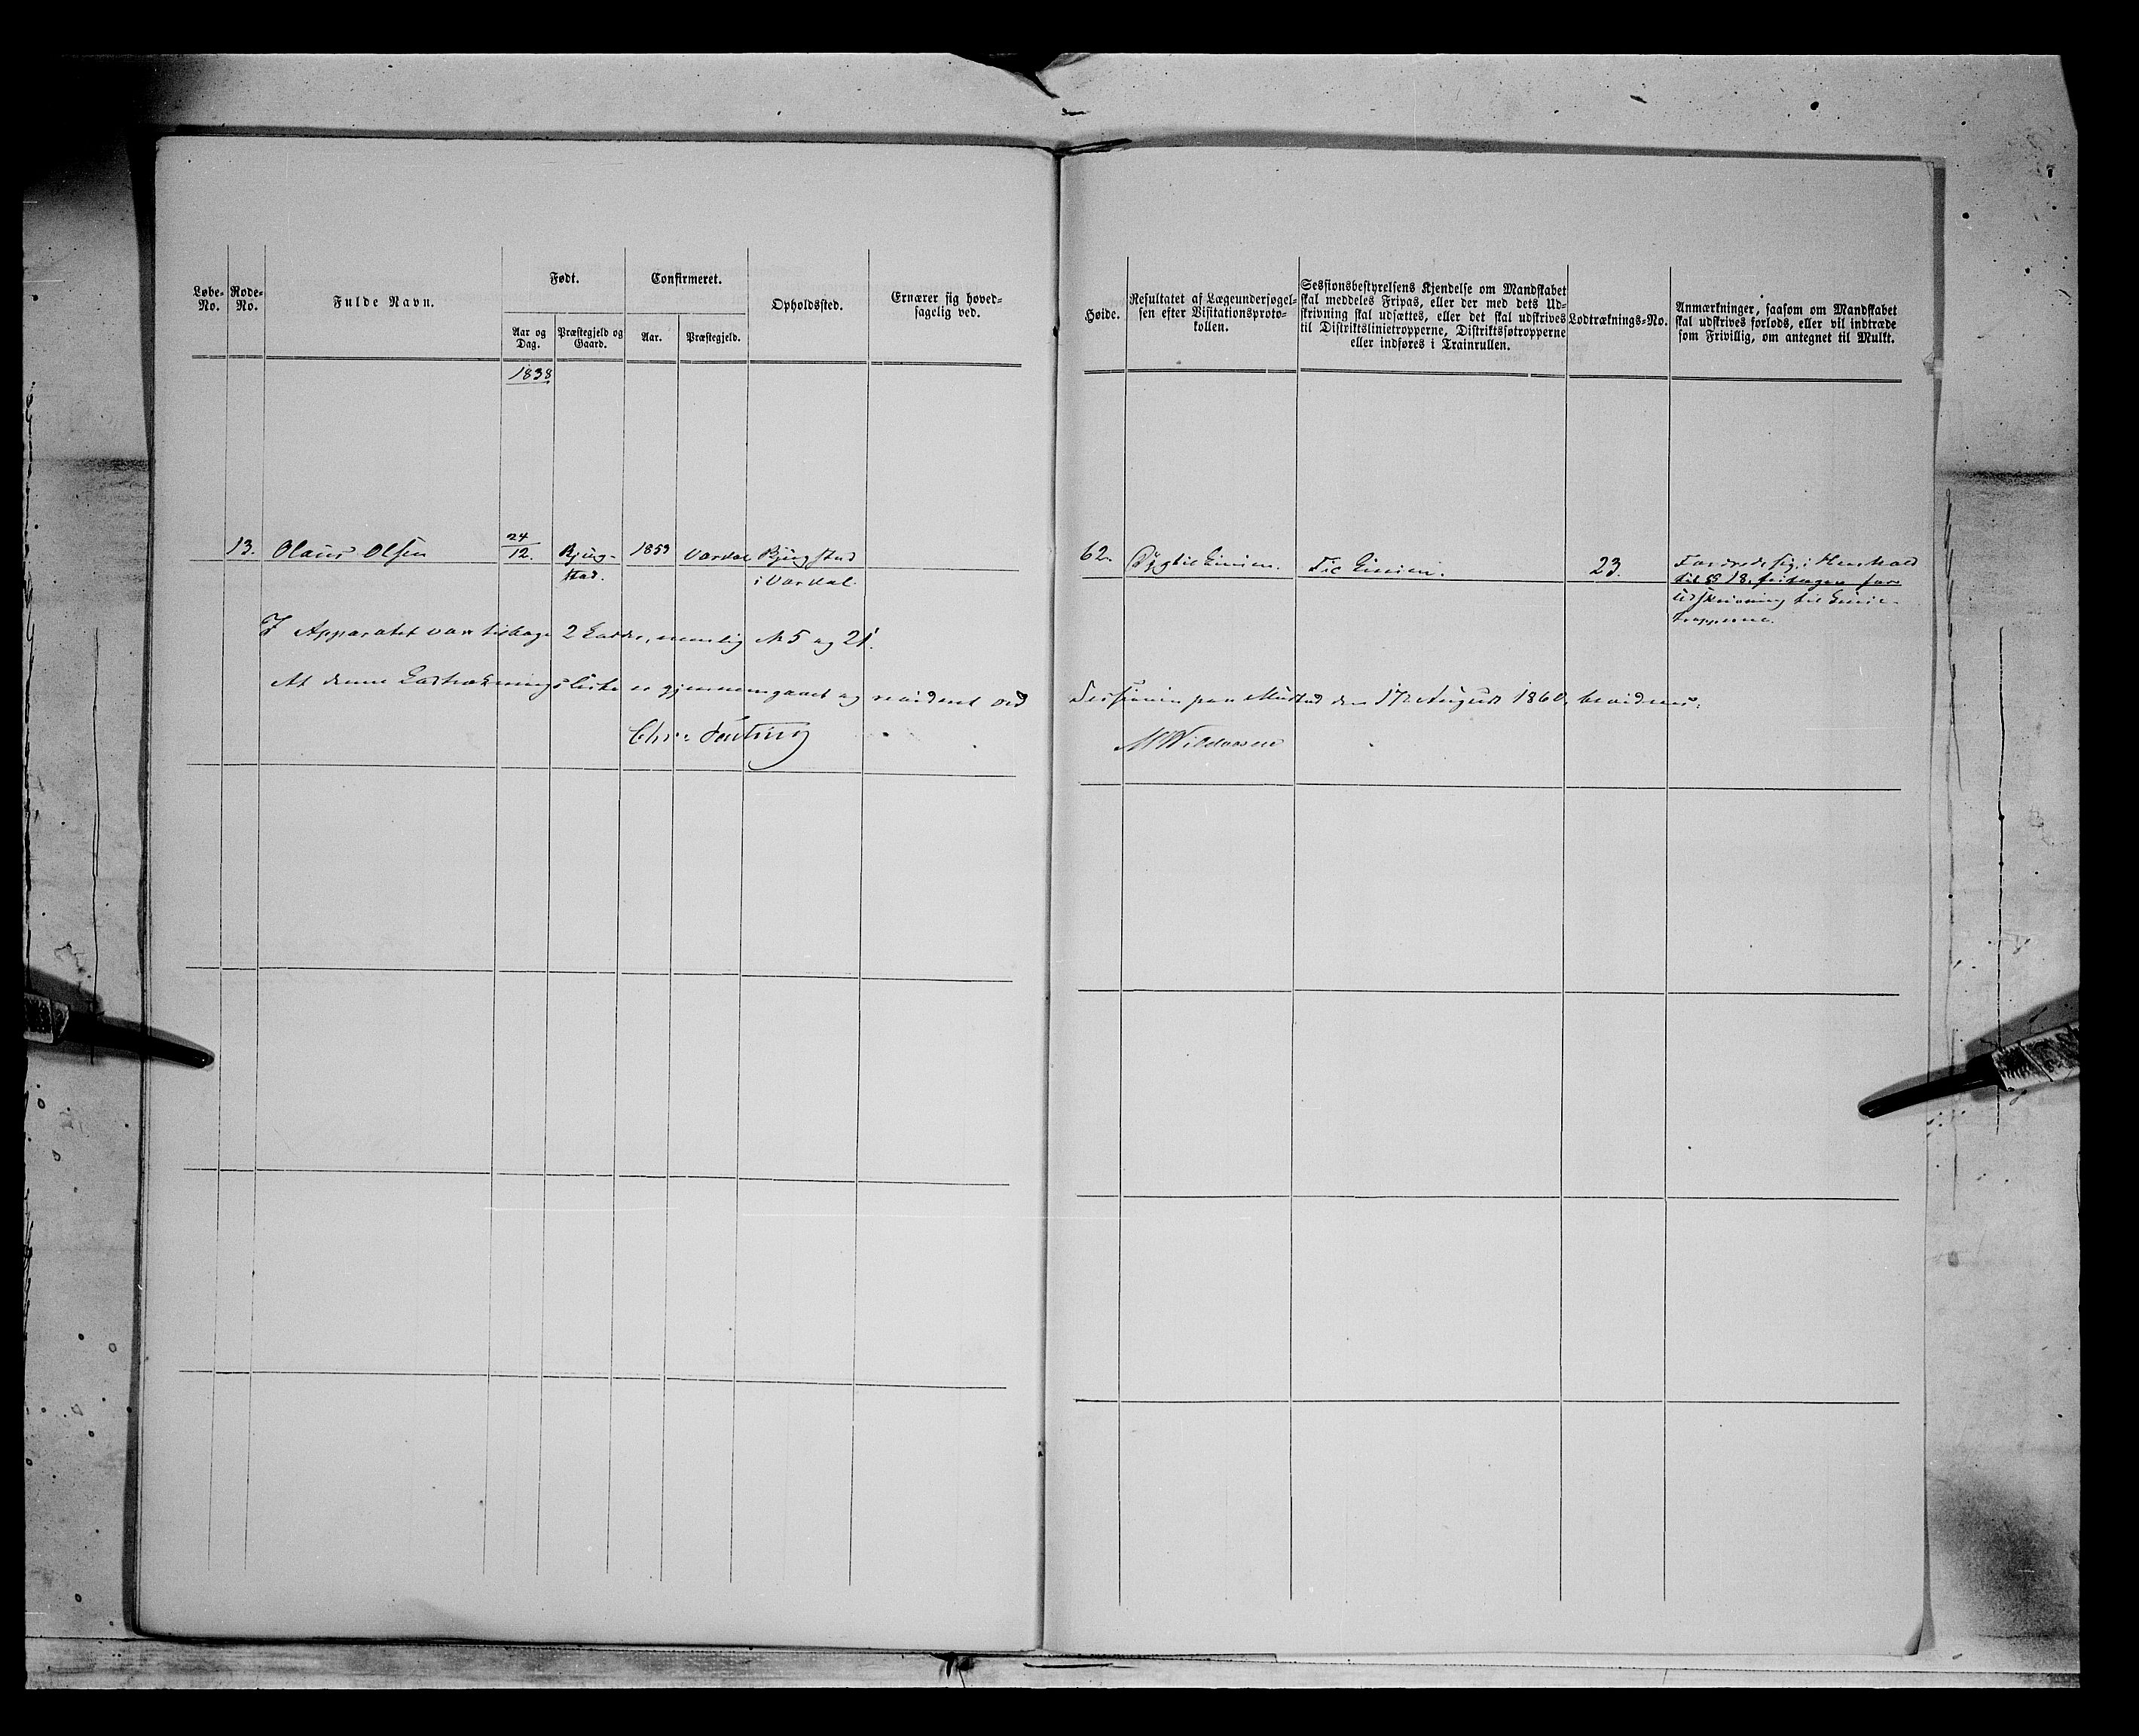 Løbe-No.
Rode-No.
Fulde Navn.
Født.
Aar og Dag.
Præstegjeld og Gaard.
Confirmeret.
Aar.
Præstegjeld.
Opholdssted.
Ernærer sig hoved-
sagelig ved.
Høide.
Resultatet af Lægeundersøgel-
sen efter Visitationsproto-
kollen.
Sessionsbestyrelsens Kjendelse om Mandskabet
skal meddeles Fripas, eller der med dets Ud-
skrivning skal udsættes, eller det skal udskrives
til Distriktslinietropperne, Distriktsføtropperne
eller indføres i Trainrullen.
Lodtræknings-No.
Anmærkninger, saasom om Mandskabet
skal udskrives forlods, eller vil indtræde
som Frivillig, om antegnet til Mulkt.
1838
13. Olaus Olsen 24/12. Bjug- 1853 Vardal Bjugstad
stad. i Vardal.
62. Dygtil Linien. Til Linien. 23.
i Henhold
til § 18
Udskrivning til Linie-
tropperne.
I Apparatet var tilbage 2 Lodder, nemlig No 5 og 21.
At denne Lodtrækningsliste er gjennemgaaet og revideret ved Sessionen paa Mustad den 17de August 1860, bevidnes.
Chr.